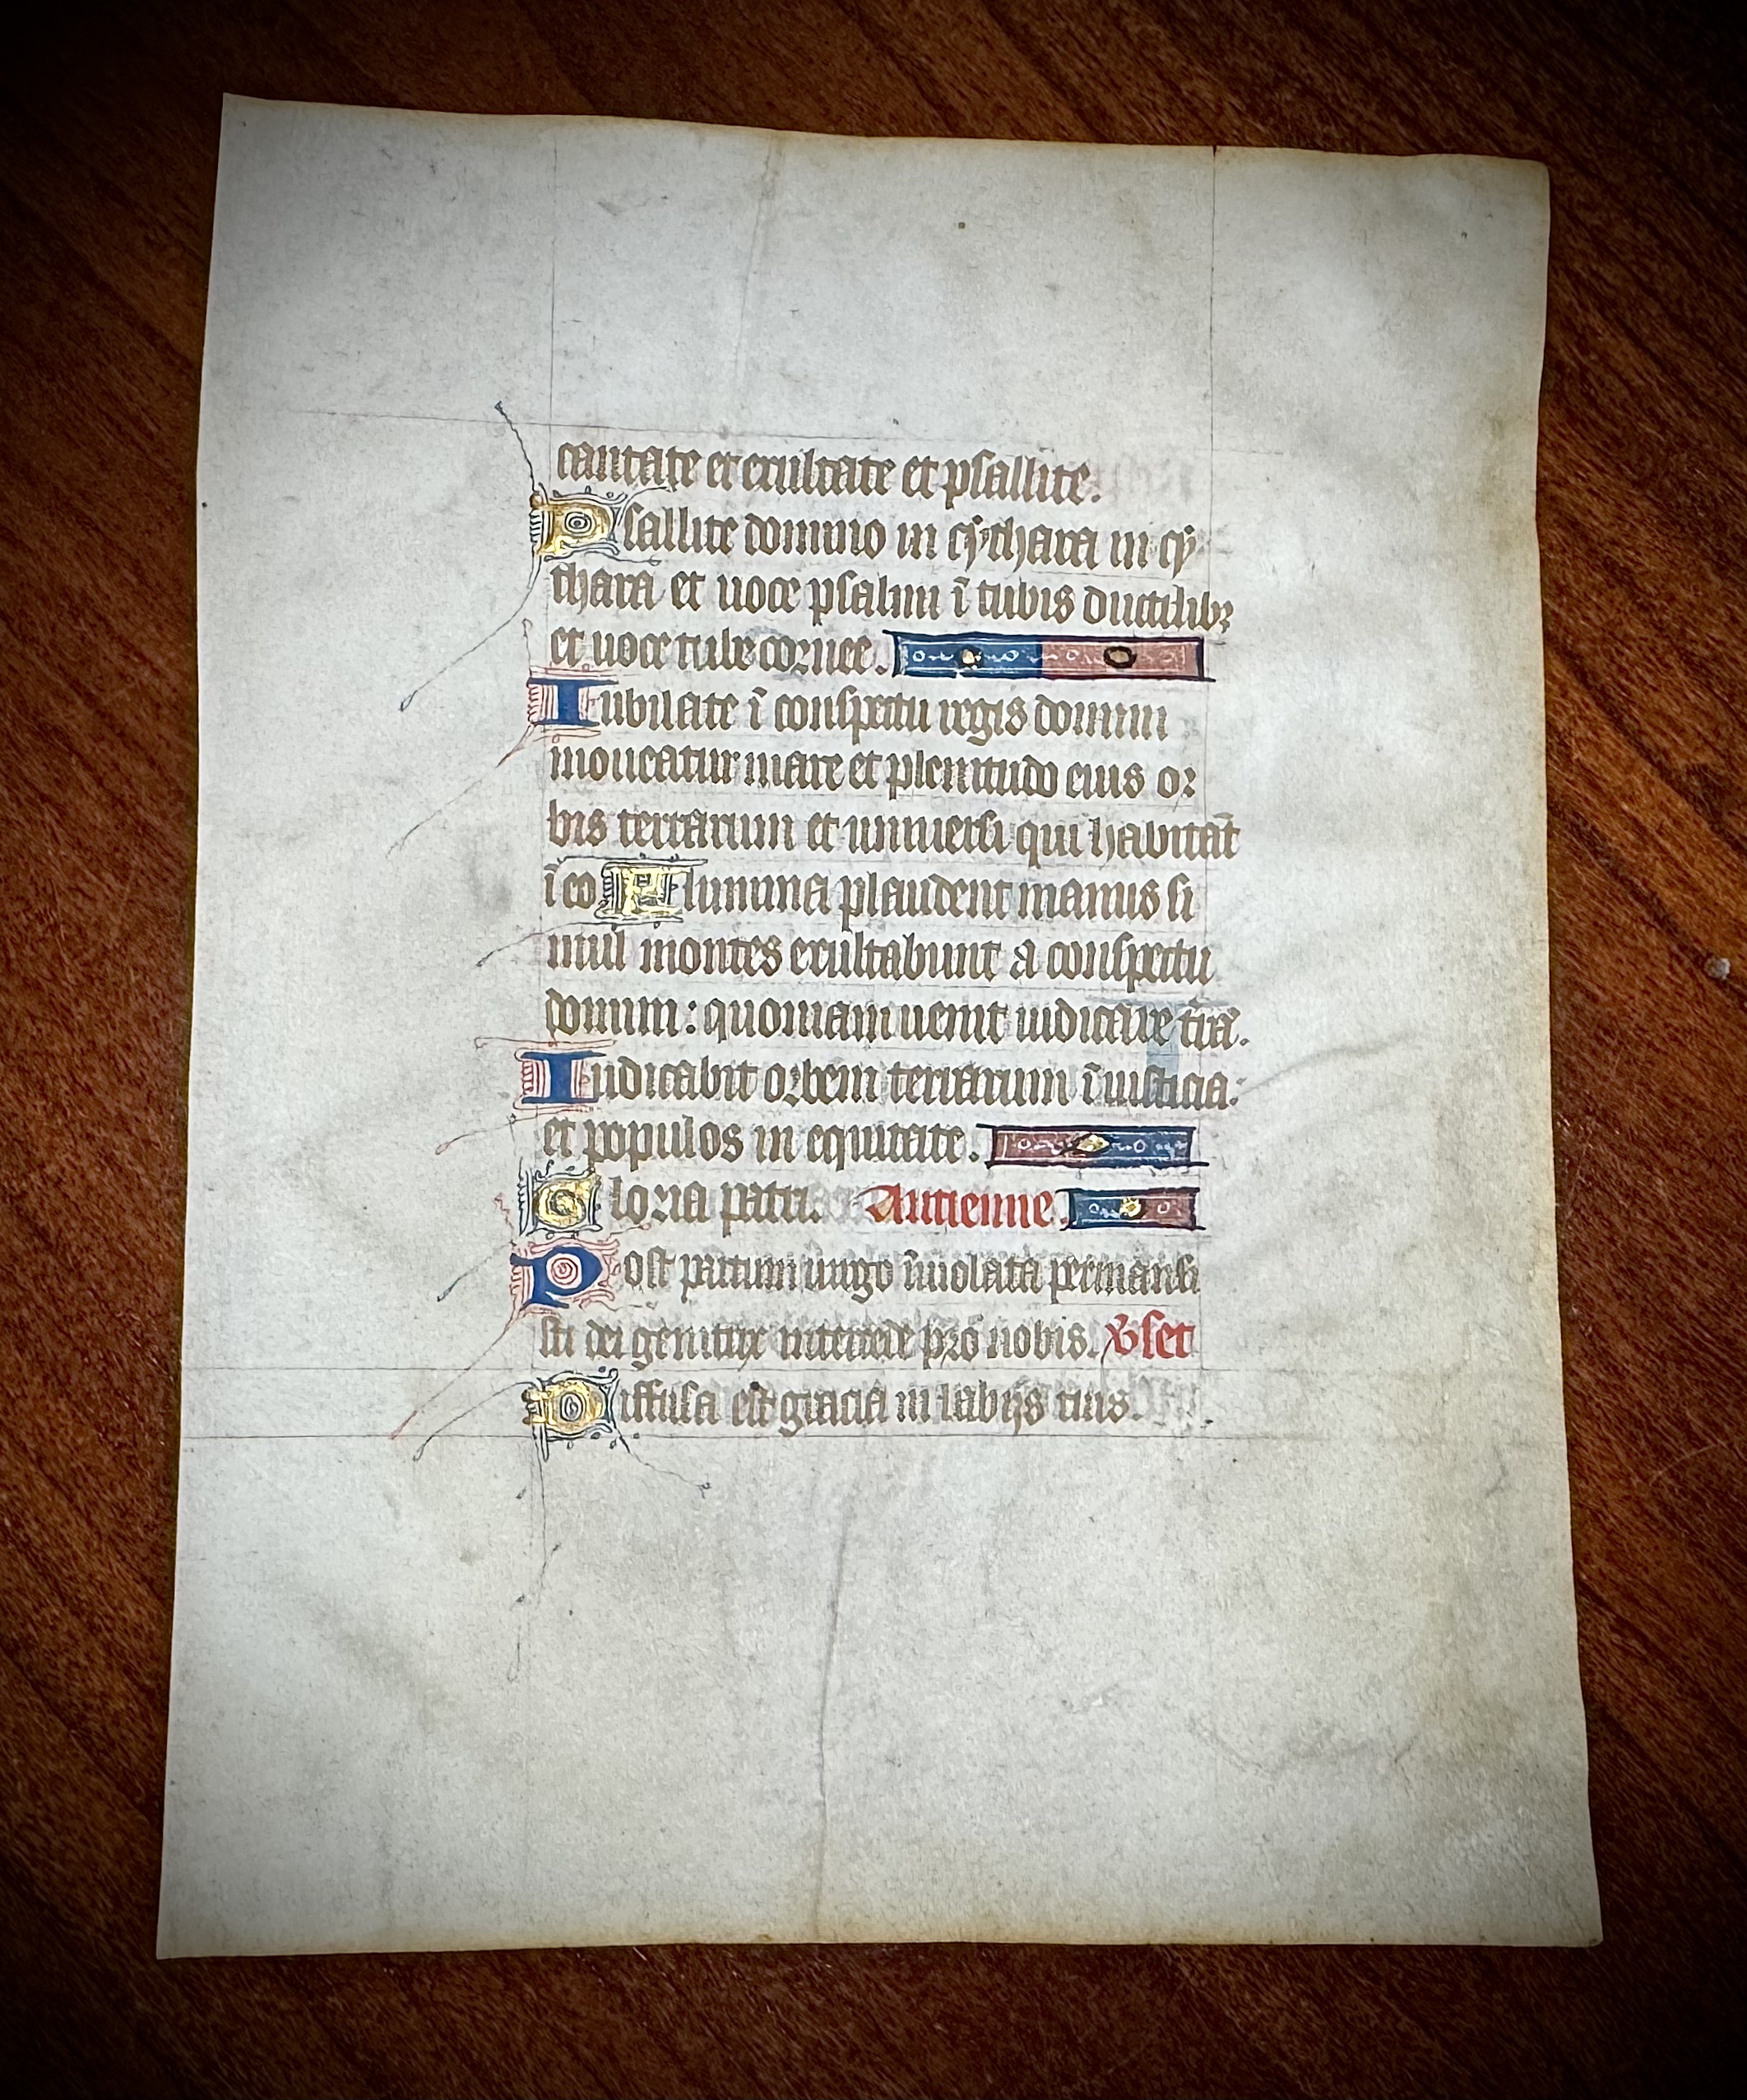 cantate et exultate et psallite.
Psallite domino in cythara in cy
thara et uoce psalmi ī tubis ductilibꝫ
et uoce tube cornee.
Iubilate ī conspectu regis domini
moueatur mare et plenitudo eius or
bis terrarum et uniuersi qui habitāt
ī eo Flumina plaudent manus si
mul montes exultabunt a conspectu
domini: quoniam uenit iudicare t̄rā.
Iudicabit orbem terrarum ī iusticia:
et populos in equitate.
Gloria patri. Antienne.
Post partum uirgo īuiolata permansi
sti dei genitrix intercede pro nobis. ℣set
Diffusa est gracia in labijs tuis.